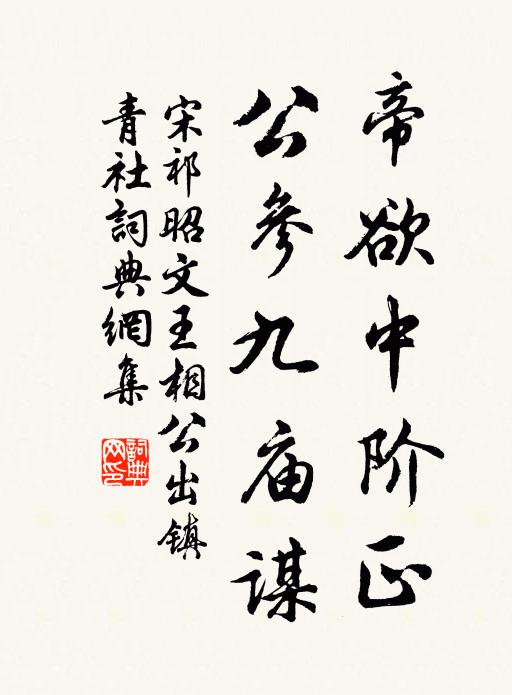 帝欲中阶正
公参九庙谋
宋祁昭文王相公出镇
青社詞典網集
詞典
网印